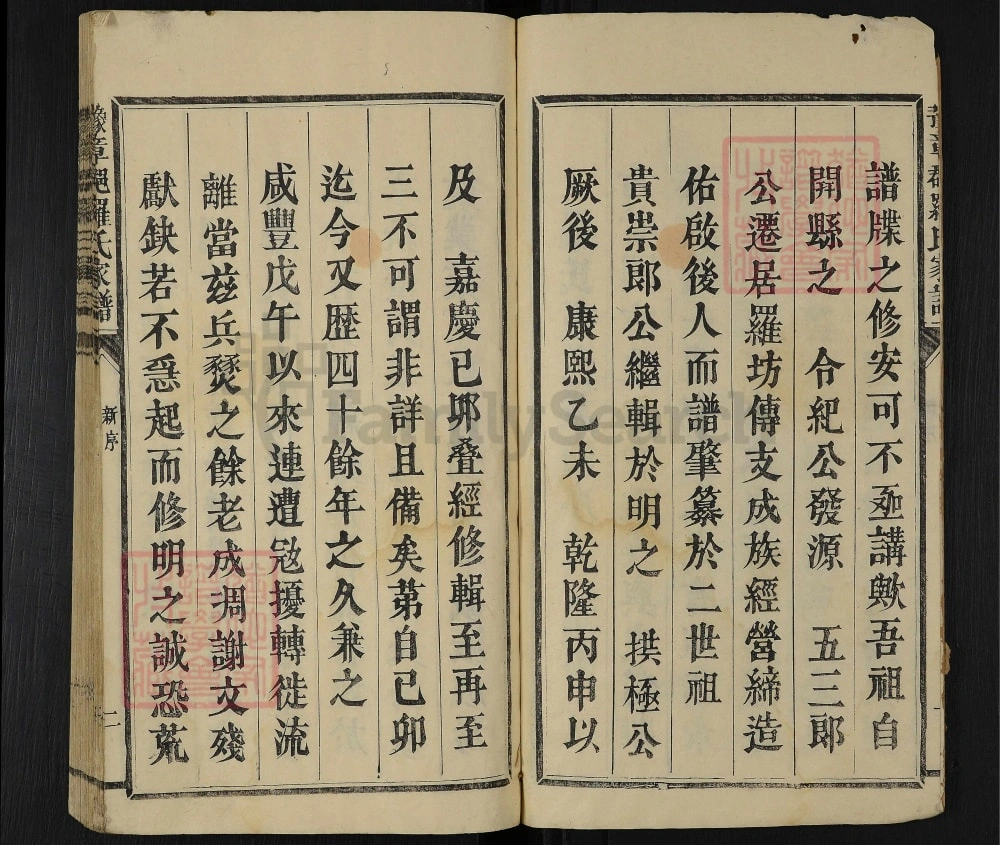 譜牒之修安可不亟講歟吾祖自
開縣之 令紀公發源 五三郎
公遷居羅坊傳支成族經營締造
佑啟後人而譜肇纂於二世祖
貴崇郎公繼輯於明之 拱極公
厥後 康熙乙未 乾隆丙申以
及 嘉慶已夘叠經修輯至再至
三不可謂非詳且備矣苐自已卯
迄今又歴四十餘年之久兼之
咸豐戊午以來連遭宼擾轉徙流
離當兹兵燹之餘老成凋謝文殘
獻缺若不急起而修明之誠恐荒
豫章郡羅氏家譜
新序
二
FamilySearch